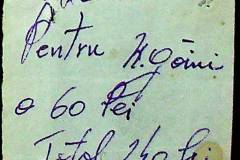 Pentru 4 găini
a 60 lei
Total 240 lei